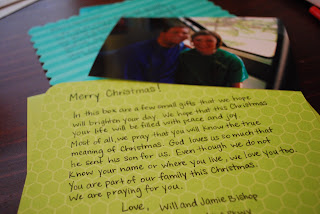 Merry Christmas!
In this box are a few small gifts that we hope
will brighten your day. We hope that this Christmas
your life will be filled with peace and joy.
Most of all, we pray that you will know the true
meaning of Christmas. God loves us so much that
he sent his son for us. Even though we do not
know your name or where you live, we love you too.
You are part of our family this Christmas.
We are praying for you.
Love, Will and Jamie Bishop